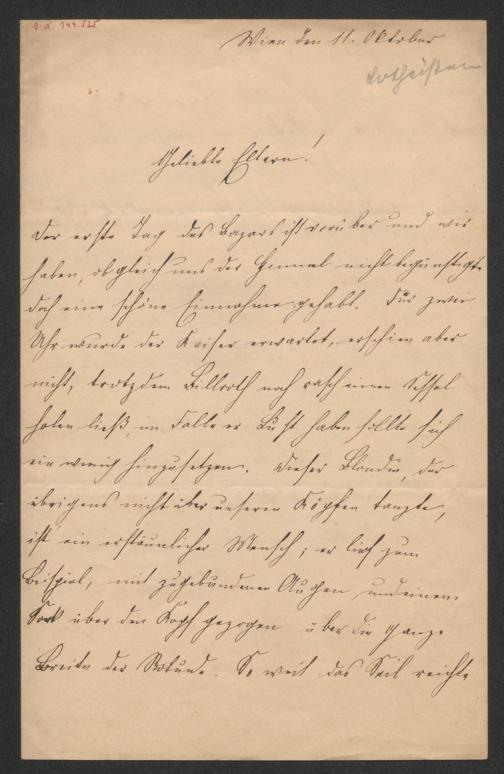 I.N. 149.525
Wien den 11. Oktober
Lotheissen
Geliebte Eltern!
Der erste Tag des Bazars ist vorüber und wir
haben, obgleich uns der Himmel nicht begünstigte
doch eine schöne Einnahme gehabt. Für zwei
Uhr wurde der Kaiser erwartet, erschien aber
nicht, trotzdem Billroth noch rasch einen Sessel
holen ließ, im Falle er Lust haben sollte sich
ein wenig hinzusetzen. Dieser Blondin, der
übrigens nicht über unseren Köpfen tanzte,
ist ein erstaunlicher Mensch; er lief zum
Beispiel, mit zugebundenen Augen, und einen
Sack über den Kopf gezogen über die ganze
Breite der Rotunde. So weit das Seil reichte